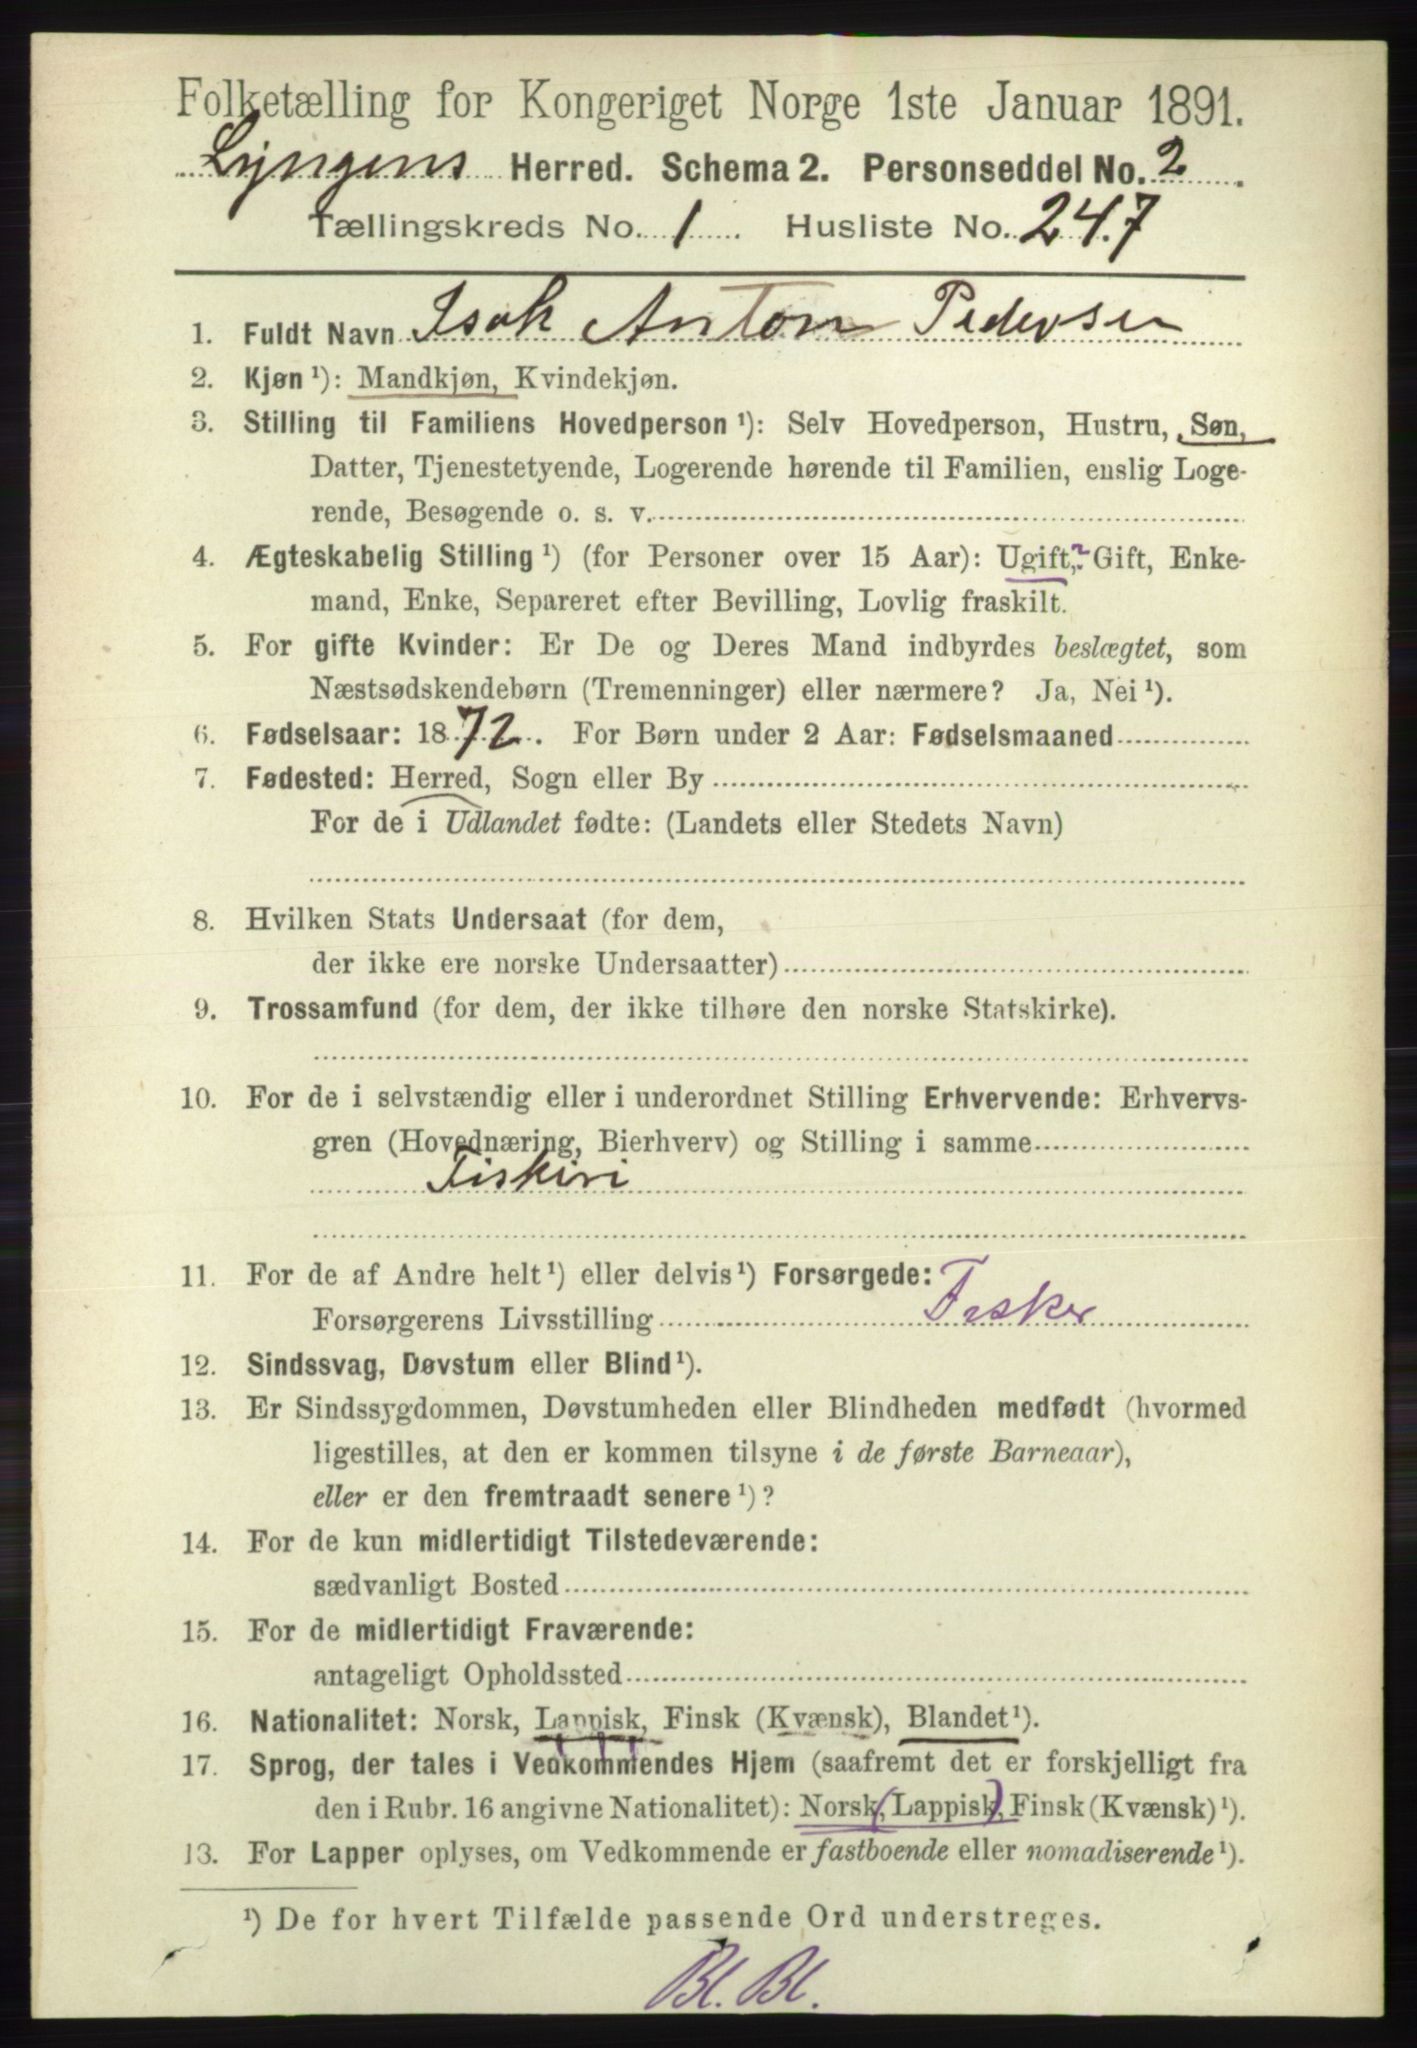 Folketælling for Kongeriget Norge 1ste Januar 1891.
Lyngens Herred. Schema 2. Personseddel No. 2.
Tællingskreds No. 1. Husliste No. 247
1. Fuldt Navn Isak Anton Pedersen
2. Kjøn¹): Mandkjøn, Kvindekjøn.
3. Stilling til Familiens Hovedperson¹): Selv Hovedperson, Hustru, Søn,
Datter, Tjenestetyende, Logerende hørende til Familien, enslig Loge-
rende, Besøgende o. s. v.
4. Ægteskabelig Stilling¹) (for Personer over 15 Aar): Ugift,² Gift, Enke-
mand, Enke, Separeret efter Bevilling, Lovlig fraskilt.
5. For gifte Kvinder: Er De og Deres Mand indbyrdes beslægtet, som
Næstsødskendebørn (Tremenninger) eller nærmere? Ja, Nei¹).
6. Fødselsaar: 1872. For Børn under 2 Aar: Fødselsmaaned
7. Fødested: Herred, Sogn eller By
For de i Udlandet fødte: (Landets eller Stedets Navn)
8. Hvilken Stats Undersaat (for dem,
der ikke ere norske Undersaatter)
9. Trossamfund (for dem, der ikke tilhøre den norske Statskirke).
10. For de i selvstændig eller i underordnet Stilling Erhvervende: Erhvervs-
gren (Hovednæring, Bierhverv) og Stilling i samme
Fiskeri
11. For de af Andre helt¹) eller delvis¹) Forsørgede:
Forsørgerens Livsstilling Fisker
12. Sindssvag, Døvstum eller Blind¹).
13. Er Sindssygdommen, Døvstumheden eller Blindheden medfødt (hvormed
ligestilles, at den er kommen tilsyne i de første Barneaar),
eller er den fremtraadt senere¹)?
14. For de kun midlertidigt Tilstedeværende:
sædvanligt Bosted
15. For de midlertidigt Fraværende:
antageligt Opholdssted
16. Nationalitet: Norsk, Lappisk, Finsk (Kvænsk), Blandet¹).
17. Sprog, der tales i Vedkommendes Hjem (saafremt det er forskjelligt fra
den i Rubr. 16 angivne Nationalitet): Norsk (, Lappisk), Finsk (Kvænsk)¹).
13. For Lapper oplyses, om Vedkommende er fastboende eller nomadiserende¹).
¹) De for hvert Tilfælde passende Ord understreges.
Bl. Bl.